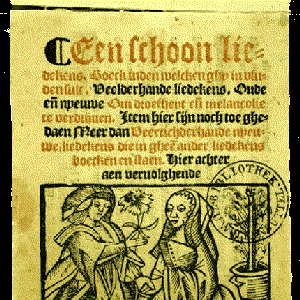 Een schoon lie-
dekens. Boeck inden welcken ghy in vin-
den sult. Veelderhande liedekens. Oude
eñ nyeuwe Om droefheyt eñ melancolie
te verdrijuen. Item hier sijn noch toe ghe-
daen Meer dan Veertichderhande nyeu-
we liedekens die in gheẽ ander liedekens
boecken en staen. Hier achter
aen veruolghende
BIBLIOTHEK